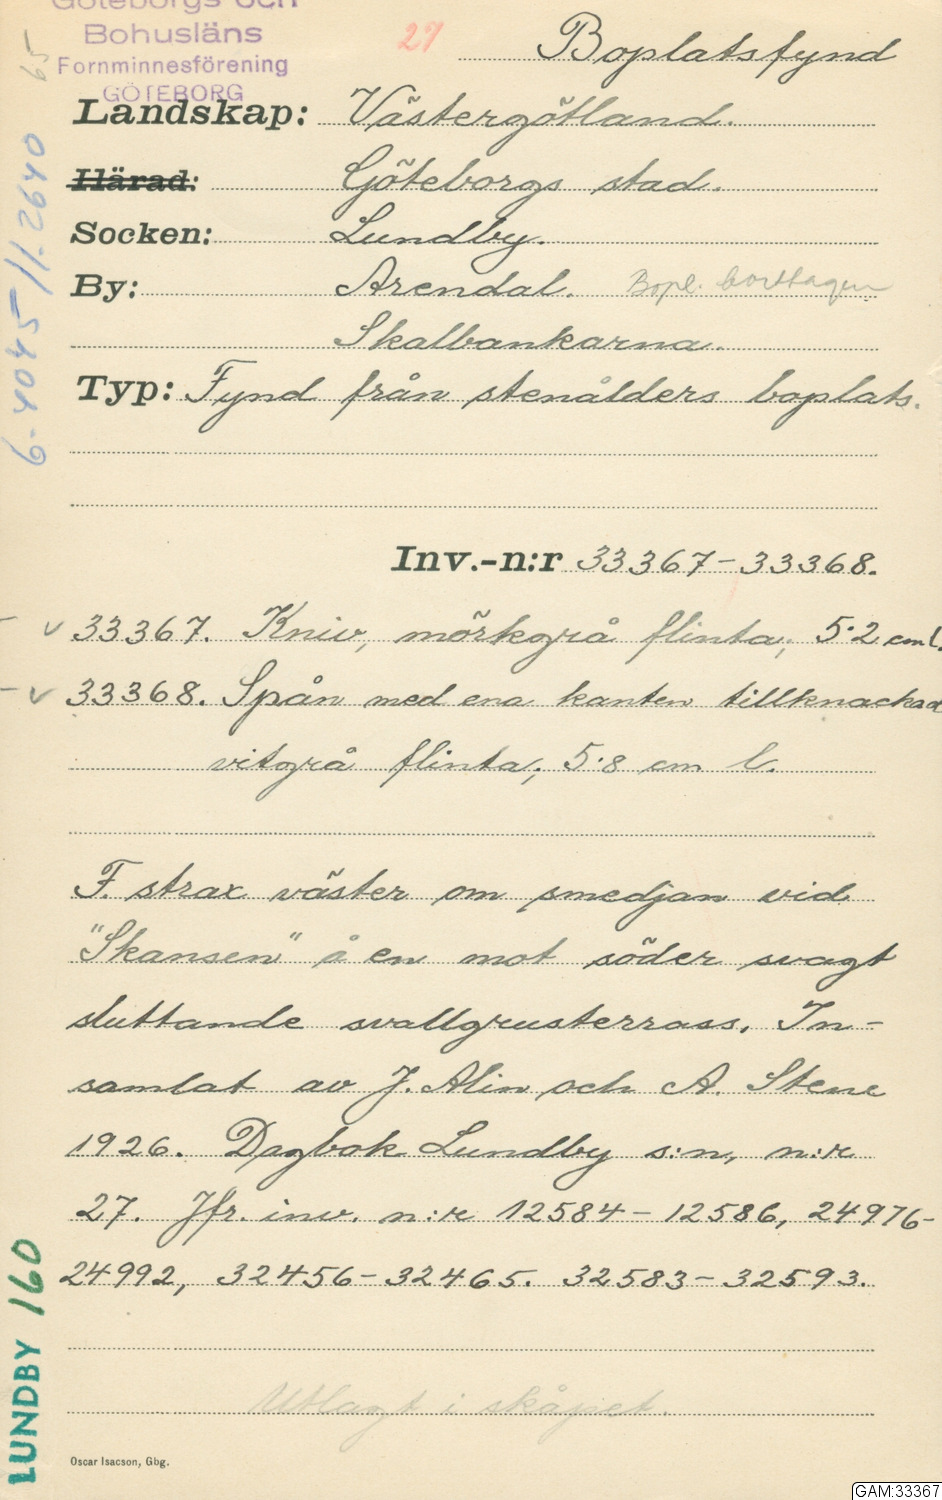 Göteborgs och
Bohusläns
Fornminnesförening
GÖTEBORG
27
Boplatsfynd
Landskap: Västergötland.
Härad: Göteborgs stad.
Socken: Lundby.
By: Arendal. Bopl. borttagen
Skalbankarna.
Typ: Fynd från stenålders boplats.
Inv.-n:r 33367-33368.
v 33367. Kniv, mörkgrå flinta; 5.2 cm l.
v 33368. Spån med ena kanten tillknackad
vitgrå flinta; 5.8 cm l.
F. strax väster om smedjan vid
"Skansen" å en mot söder svagt
sluttande svallgrusterrass. In-
samlat av J. Alin och A. Stene
1926. Dagbok Lundby s:n, n:r
27. Jfr. inv. n:r 12584-12586, 24976-
24992, 32456-32465. 32583-32593.
Utlagt i skåpet.
Oscar Isacson, Gbg.
LUNDBY 160
6-4045 // -2640
65
GAM:33367